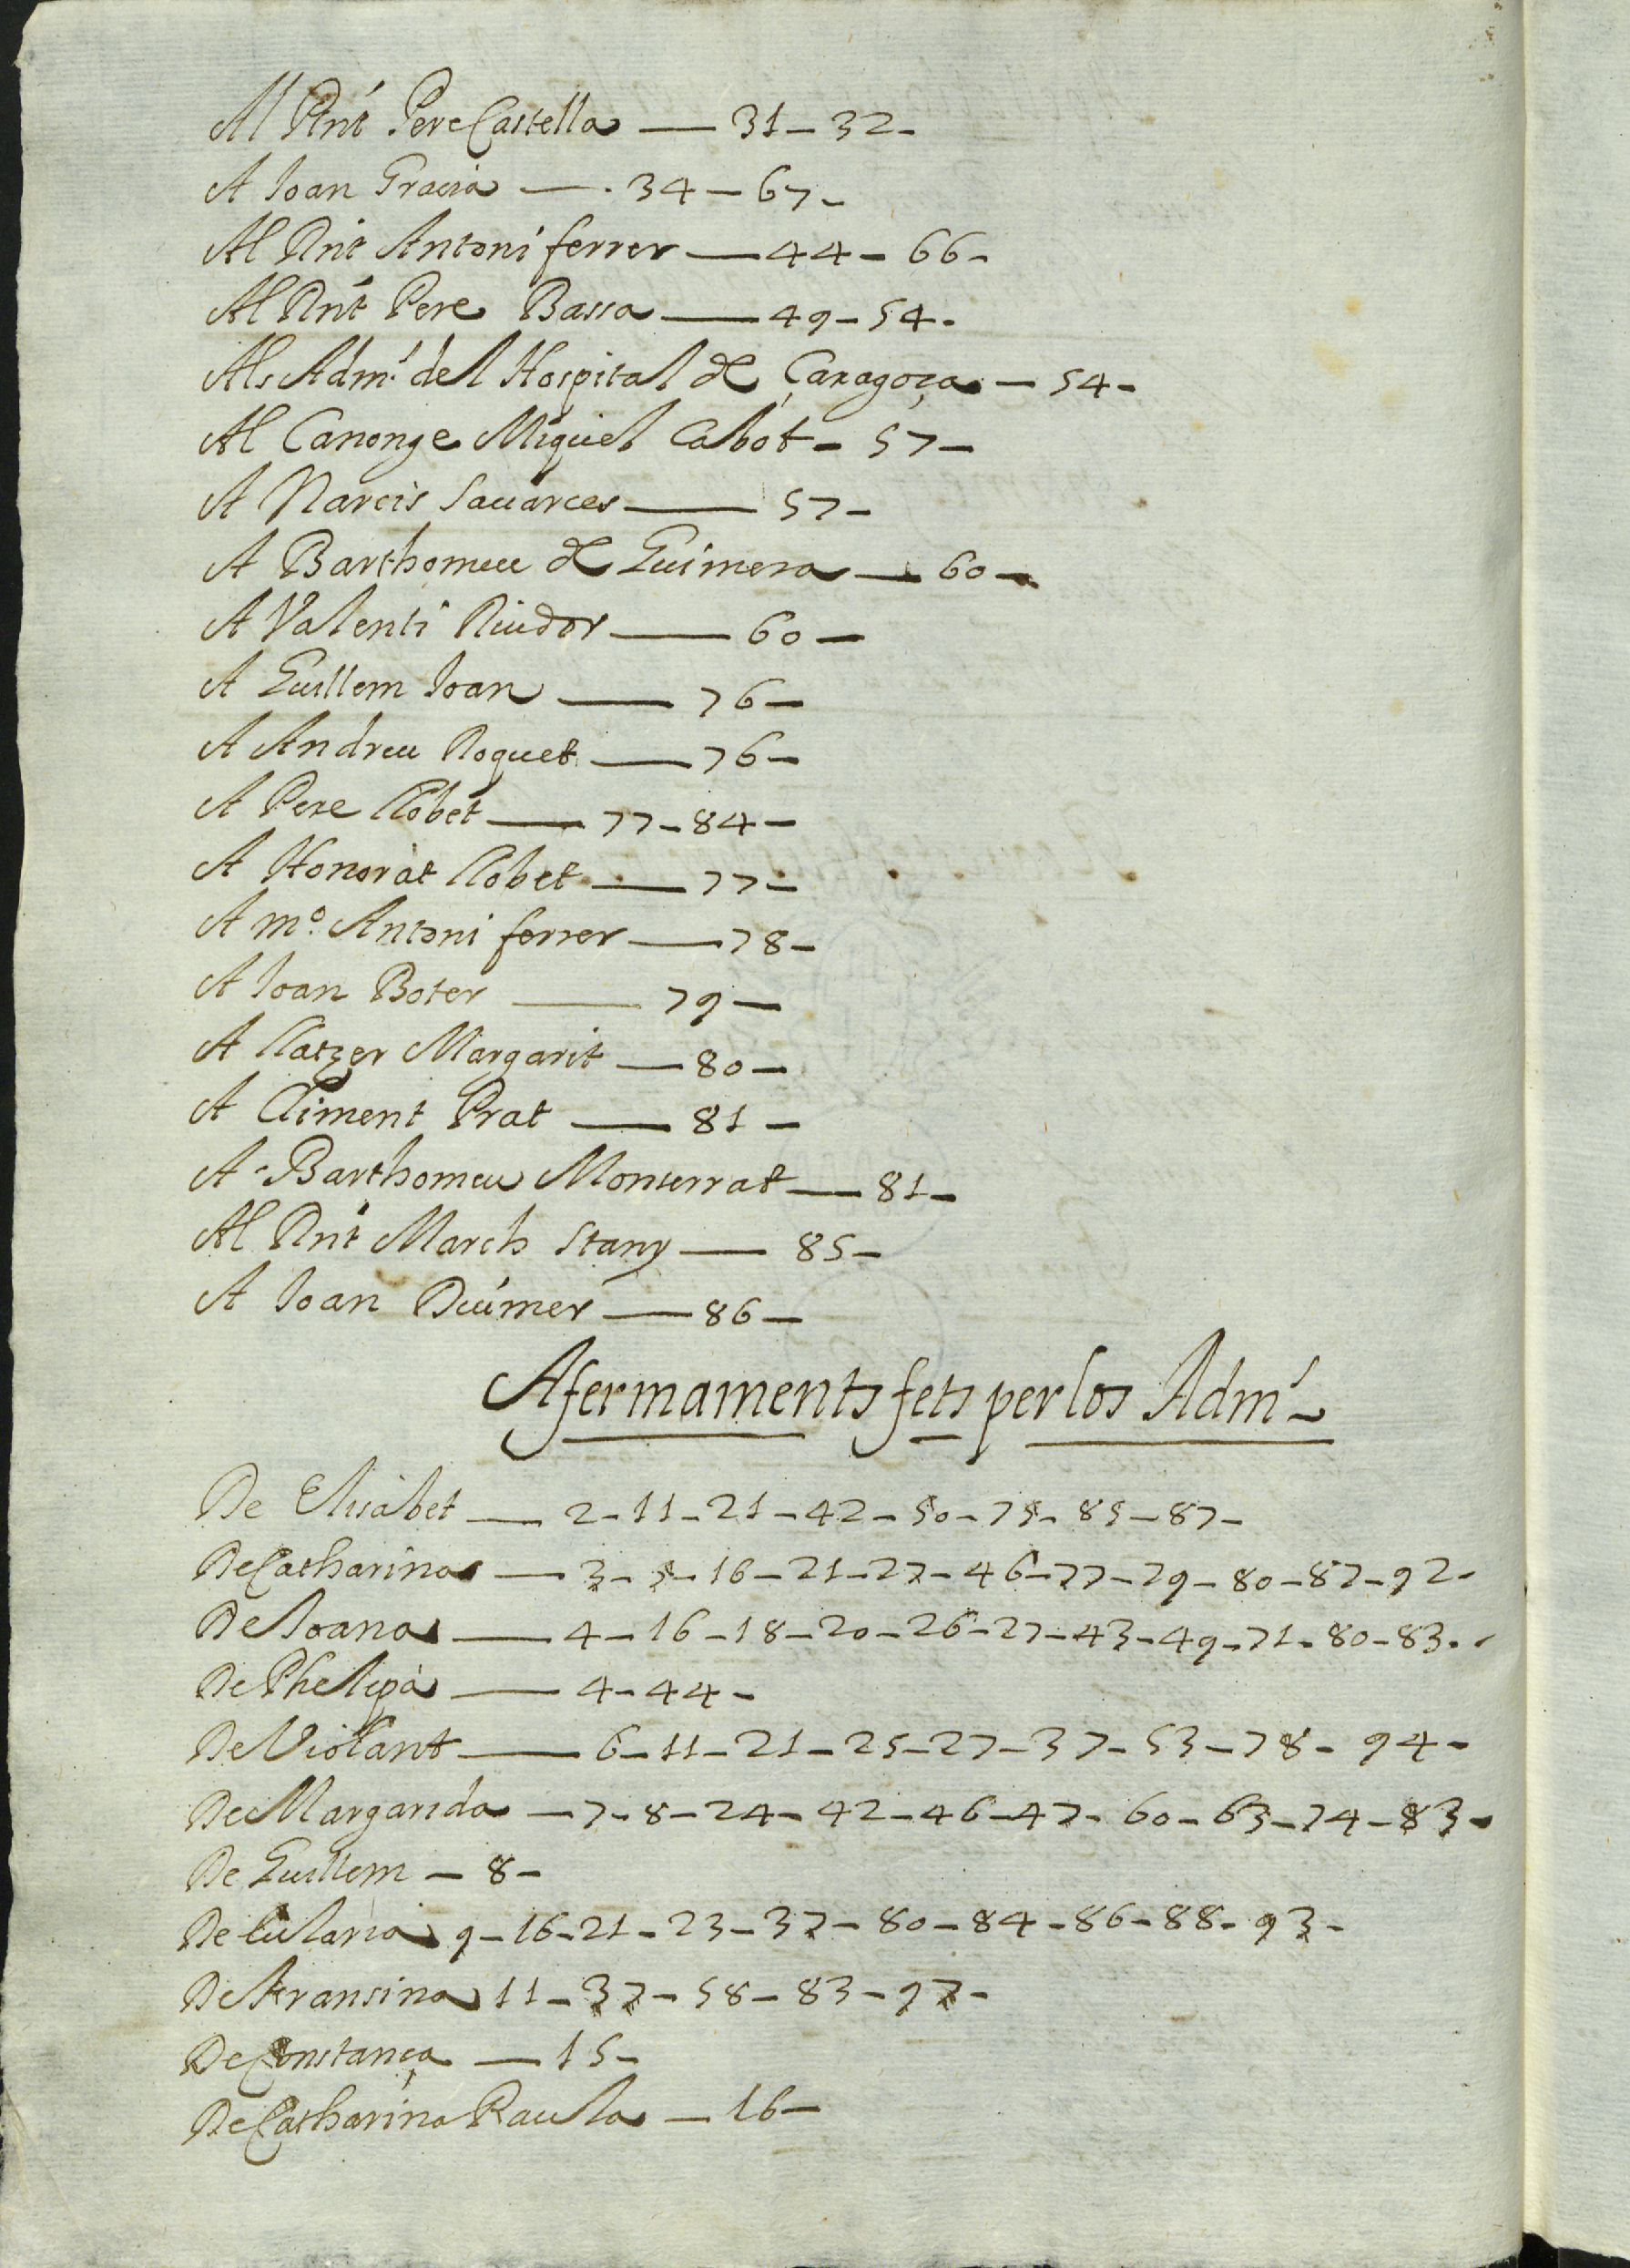 Al Rnt Pere Castella — 31 – 32 –
A Joan Gracia — . 34 – 67 –
Al Rnt Antoni ferrer — 44 – 66 –
Al Rnt Pere Bassa — 49 – 54 .
Als Adm.ʳˢ del Hospital de Çaragoça – 54 –
Al Canonge Miquel Cabot – 57 –
A Narcis Sauarces — 57 –
A Barthomeu de Guimera — 60 –
A Valenti Riudor — 60 –
A Guillem Joan — 76 –
A Andreu Roquet — 76 –
A Pere llobet — 77 – 84 –
A Honorat llobet — 77 –
A mº. Antoni ferrer — 78 –
A Joan Boter — 79 –
A llatzer Margarit — 80 –
A Climent Prat — 81 –
A Barthomeu Monserrat — 81 –
Al Rnt March Stany — 85 –
A Joan Duimer — 86 –
Afermaments fets per los Adm.ʳˢ
De Elisabet — 2 – 11 – 21 – 42 – 50 – 75 – 85 – 87 –
De Catharina — 3 – 5 – 16 – 21 – 27 – 46 – 77 – 79 – 80 – 87 – 92 –
De Joana — 4 – 16 – 18 – 20 – 26 – 27 – 43 – 49 – 71 – 80 – 83 . –
De Phelipa — 4 – 44 –
De Violant — 6 – 11 – 21 – 25 – 27 – 37 – 53 – 78 – 94 –
De Margarida — 7 – 8 – 24 – 42 – 46 – 47 – 60 – 63 – 74 – 83 –
De Guillem – 8 –
De Eularia 9 – 16 – 21 – 23 – 37 – 80 – 84 – 86 – 88 – 93 –
De fransina 11 – 37 – 58 – 83 – 97 –
De Constança — 15 –
De Catharina Paula – 16 –